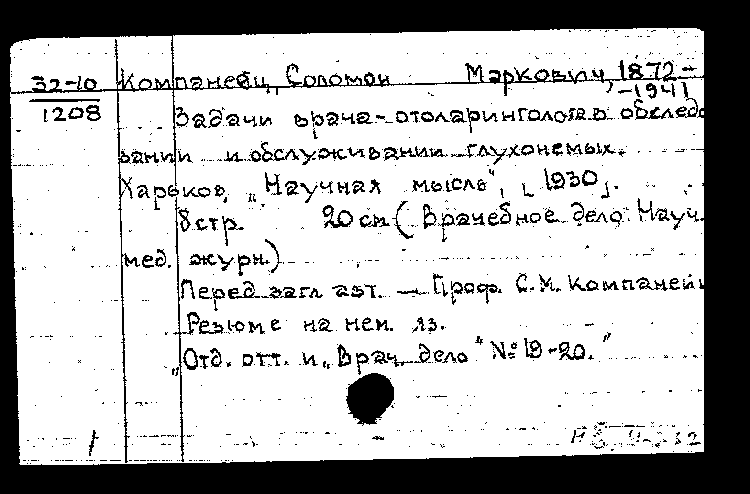 32-10 Компанеец, Соломон Маркович, 1872-
1208 -1941
Задачи врача-отоларинголога в обследо
вании и обслуживании глухонемых.
Харьков, „Научная мысль", [1930].
8 стр. 20 см (Врачебное дело Науч.
мед. журн.)
Перед загл авт. — Проф. С.М. Компанеец
Резюме на нем. яз.
„Отд. отт. и „Врач. дело" № 19-20."